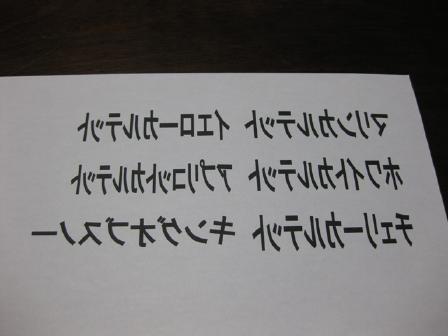 マリンカルテット イエローカルテット
ホワイトカルテット アプリコットカルテット
チェリーカルテット キングオブスノー